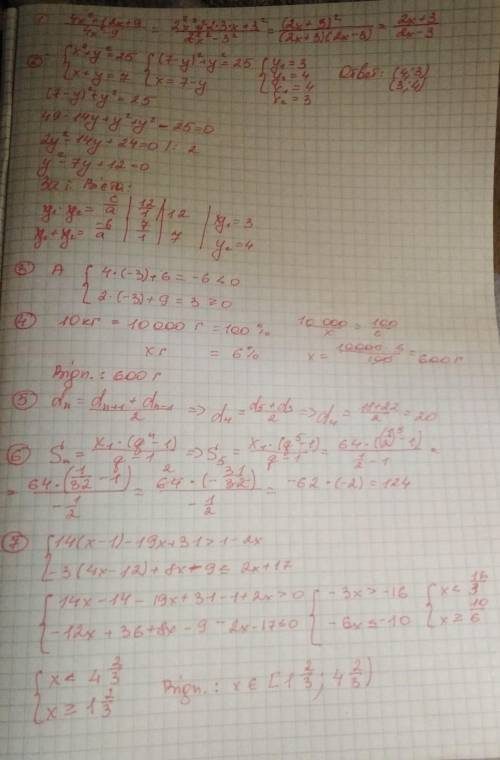 1) 4x²+12x+9 / 4x²-9 = 2²x²+2·2·3·x+3² / 2²x²-3² = (2x+3)² / (2x+3)(2x-3) = 2x+3 / 2x-3
2) { x²+y²=25 { (7-y)²+y²=25 { y₁=3 Ответ: (4;3)
{ x+y=7 { x=7-y y₂=4 (3;4)
(7-y)²+y²=25 x₁=4
x₂=3
49-14y+y²+y²-25=0
2y²-14y+24=0 |:2
y²-7y+12=0
За т. Вієта:
y₁·y₂ = c/a | 12/1 | 12 | y₁=3
y₁+y₂ = -b/a | 7/1 | 7 | y₂=4
3) А { 4·(-3)+6=-6<0
{ 2·(-3)+9=3≥0
4) 10кг = 10 000 г = 100% 10 000/x = 100/6
x г = 6% x = 10000·6/100 = 600 г
Відп.: 600 г
5) dₙ = dₙ₊₁+dₙ₋₁ / 2 => d₄ = d₅+d₃ / 2 => d₄ = / 2 = 20
6) Sₙ = x₁·(qⁿ-1) / q-1 => S₅ = x₁·(q⁵-1) / q-1 = 64·((1/2)⁵-1) / 1/2-1 =
= 64·(1/32-1) / -1/2 = 64·(-31/32) / -1/2 = -62·(-2) = 124
7) { 14(x-1)-19x+31>1-2x
{ -3(4x-12)+8x-9≤2x+17
{ 14x-14-19x+31-1+2x>0 { -3x>-16 { x<16/3
{ -12x+36+8x-9-2x-17≤0 { -6x≤-10 { x≥10/6
{ x<4 2/3 Відп.: x∈[1 2/3; 4 2/3)
{ x≥1 2/3